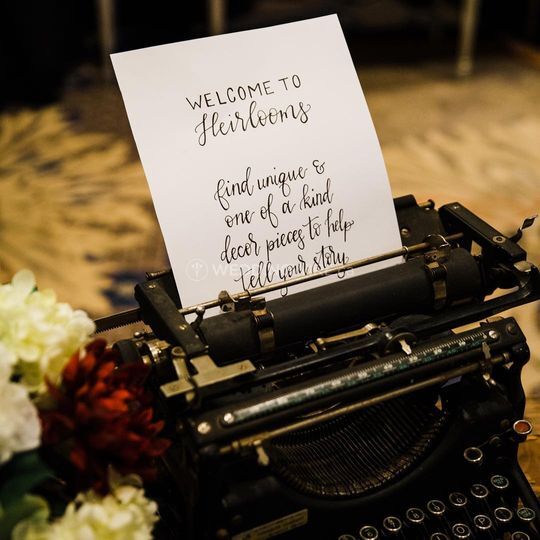 WELCOME TO
Heirlooms
find unique &
one of a kind
decor pieces to help
tell your story